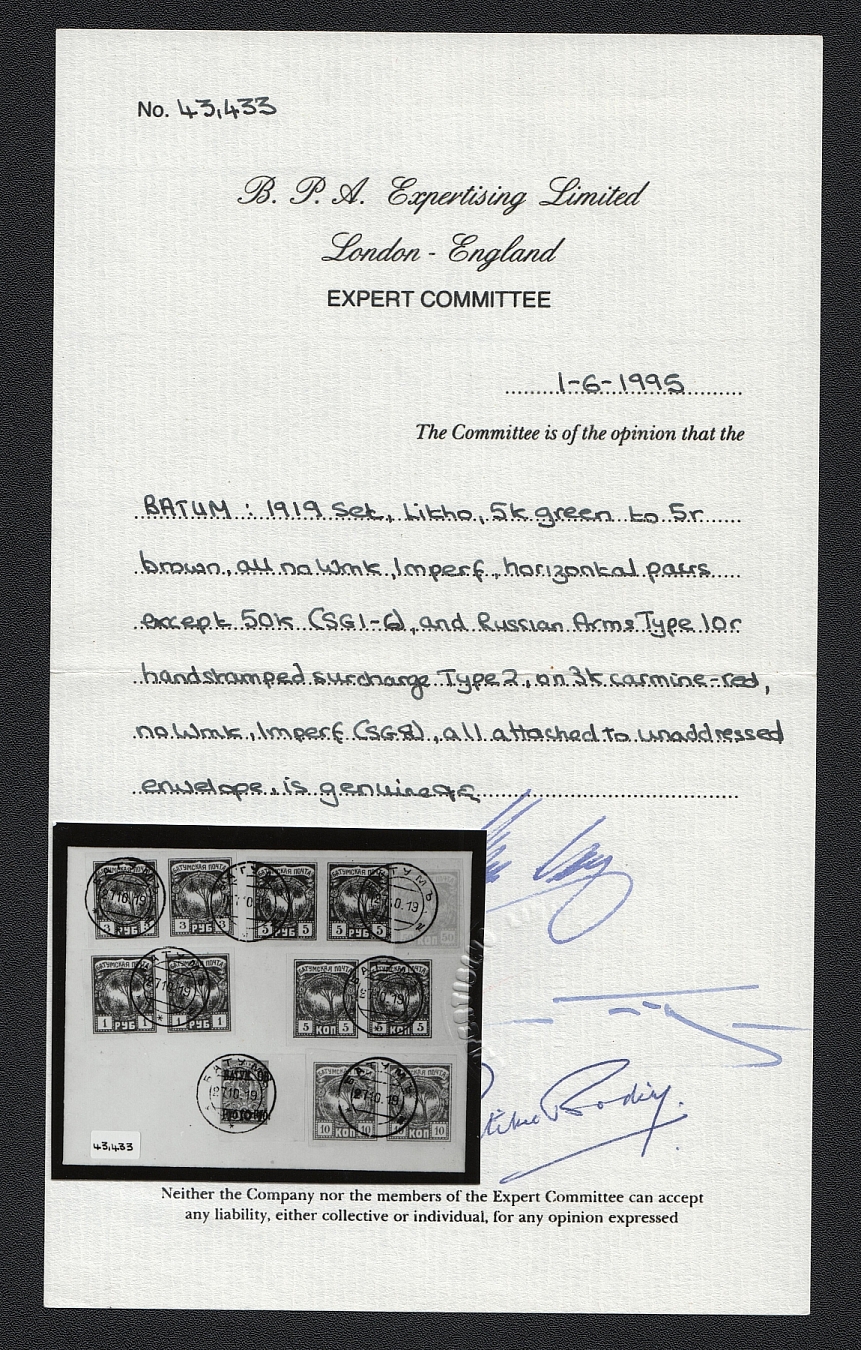 No. 43,433
B. P. A. Expertising Limited
London - England
EXPERT COMMITTEE
1-6-1995
The Committee is of the opinion that the
BATUM : 1919 Set, Litho, 5k green to 5r
brown, all no Wmk, Imperf, horizontal pairs
except 50k (SG1-6), and Russian Arms Type 10r
handstamped surcharge Type 2, on 3k carmine-red,
no Wmk, Imperf (SG8), all attached to unaddressed
envelope, is genuine
БАТУМСКАЯ ПОЧТА
3 РУБ 3
5 РУБ 5
КОП 50
БАТУМЪ
27.10.19
1 РУБ 1
5 КОП 5
10 КОП 10
43,433
Neither the Company nor the members of the Expert Committee can accept
any liability, either collective or individual, for any opinion expressed